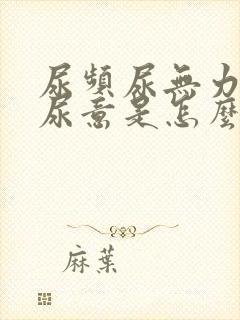 尿頻尿無力
尿意是怎麼
麻葉